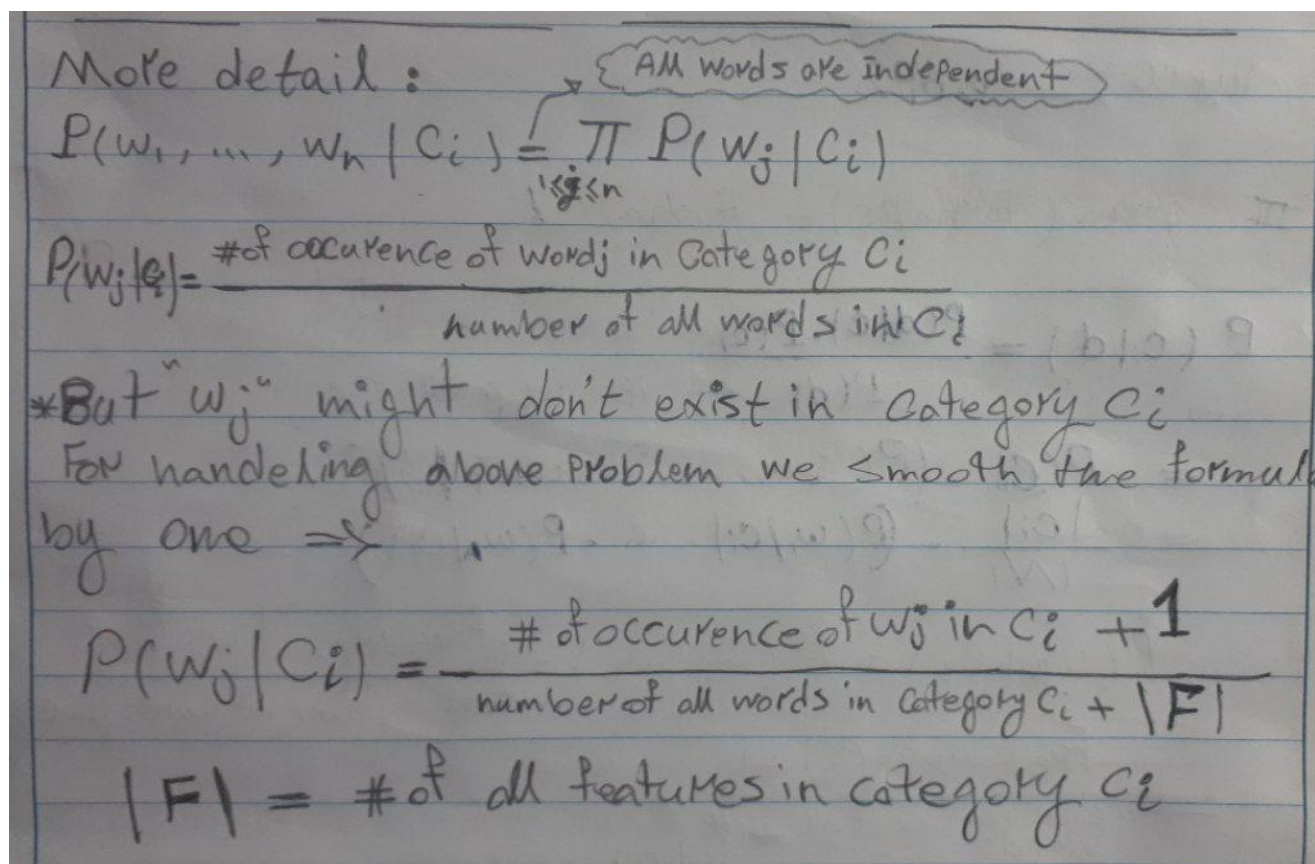 More detail :
All words are independent
P(w₁, ..., wₙ | Cᵢ) = π P(wⱼ | Cᵢ)
1≤j≤n
P(wⱼ|Cᵢ) = #of occurence of wordj in Category Cᵢ
number of all words in Cᵢ
*But "wⱼ" might don't exist in Category Cᵢ
For handeling above Problem we smooth the formul
by one =>
P(wⱼ | Cᵢ) = # of occurence of wⱼ in Cᵢ + 1
number of all words in Category Cᵢ + |F|
|F| = # of all features in category Cᵢ